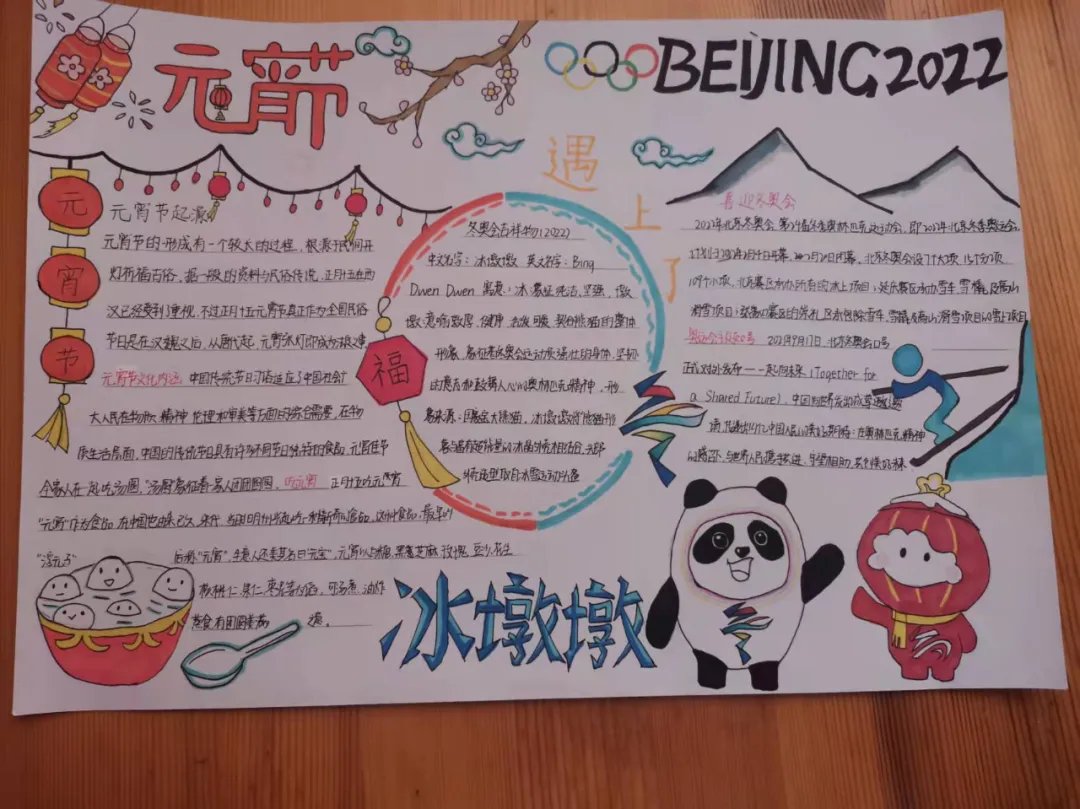 元宵节
BEIJING2022
遇
上
了
元
宵
节
元宵节起源
元宵节的形成有一个较大的过程，根源于民间开
灯祈福古俗，据一般的资料与民俗传说，正月十五在西
汉已经受到重视，不过正月十五元宵节真正作为全国民俗
节日是在汉魏之后，从唐代起，元宵张灯即成为法定事。
元宵节文化内涵 中国传统节日习俗适应了中国社会广
大人民在物质、精神、伦理和审美等方面的综合需要，在物
质生活层面，中国的传统节日具有许多不同节日独特的食品，元宵佳节
全家人在一起吃汤圆，"汤圆"象征着家人团团圆圆，吃元宵 正月十五吃元宵
"元宵"作为食品，在中国也由来已久，宋代，
"浮元子"后称"元宵"，生意人还美其名曰"元宝"，元宵以白糖、黑芝麻、玫瑰、豆沙、花生
核桃仁、果仁、枣泥等为馅，可汤煮、油炸
蒸食，有团圆美满 意。
冬奥会吉祥物(2022)
中文名字：冰墩墩 英文名字：Bing
Dwen Dwen 寓意：冰象征纯洁，坚强，墩
墩意喻敦厚，健康，活泼可爱，契合熊猫的整体
形象，象征着冬奥会运动员强壮的身体，坚韧
的意志和鼓舞人心的奥林匹克精神，形
象来源：国宝大熊猫，冰墩墩将熊猫形
象与富有超能量的冰晶外壳相结合，头部
外壳造型取自冰雪运动头盔
福
喜迎冬奥会
2022年北京冬奥会，第24届冬季奥林匹克运动会，即2022年北京冬季奥运会，
计划于2022年2月4日开幕，2022年2月20日闭幕，北京冬奥会设7个大项，15个分项
109个小项，北京赛区承办所有的冰上项目；延庆赛区承办雪车，雪橇，及高山
滑雪项目；张家口赛区的崇礼区承办除雪车，雪橇及高山滑雪项目的雪上项目
奥运会主题口号 2021年9月17日，北京冬奥口号
正式对外发布——一起向未来（Together for
a Shared Future），中国向世界发出诚挚邀
请，传递出14亿中国人民的美好期待：在奥林匹克精神
的感召下，与世界人民携手共进，守望相助，共创美好未来
冰墩墩